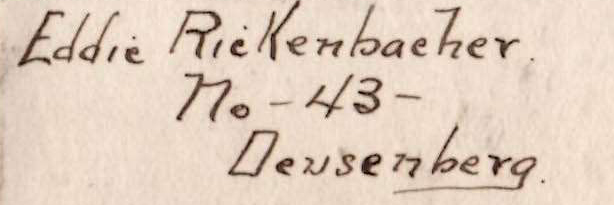 Eddie Rickenbacher.
No - 43 -
Deusenberg.